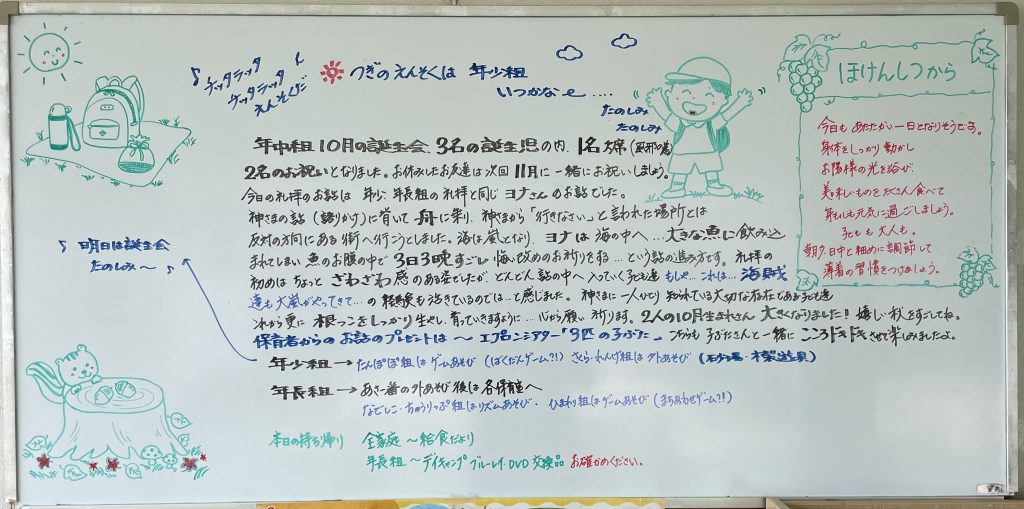 ♪ ケッタラッタ
ケッタラッタ
えんそくだ
つぎの えんそくは 年少組
いつかな〜‥‥
たのしみ
たのしみ
年中組 10月の誕生会、3名の誕生児の内、1名欠席
2名のお祝いとなりました。お休みしたお友達は次回 11月に一緒にお祝いしましょう。
今日の礼拝のお話は 年少、年長組の礼拝と同じ ヨナさんのお話でした。
神さまの話(語りかけ)に背いて 舟に乗り、神さまから「行きなさい」と言われた場所とは
反対の方向にある街へ行こうとしました。海は嵐となり、ヨナは海の中へ…大きな魚に飲み込
まれてしまい 魚のお腹の中で 3日3晩すごし 悔い改めのお祈りをする…という話の進み方です。礼拝の
初めは ちょっと ざわざわ感 のある姿でしたが、どんどん 話の中へ 入っていく子ども達 もしや…これは… 海賊
達も大嵐がやってきて…の 経験も活きているのでは…と感じました。神さまに 一人ひとり 知られている大切な存在である子ども達
これから更に 根っこをしっかり生やし、育っていきますように…心から願い 祈ります。2人の10月生まれさん 大きくなりました! 嬉しい秋をすごしてね。
保育者からの お話のプレゼントは〜 エプロンシアター「3匹の子ぶた」 こちらも 子ぶたさんと一緒に こころドキドキさせて楽しみましたよ。
♪ 明日は誕生会
たのしみ〜 ♪
年少組 → たんぽぽ組はゲームあそび (ばくだんゲーム?!) さくら・れんげ組は外あそび (砂場・木製遊具)
年長組 → あさ一番の外あそび後は各保育室へ
なでしこ・ちゅうりっぷ組はリズムあそび・ ひまわり組はゲームあそび (まちあわせゲーム?!)
本日の持ち帰り 全家庭 〜 給食だより
年長組 〜 デイキャンプ ブルーレイ・DVD 交換品 お確かめください。
ほけんしつから
今日も あたたかい一日となりそうです。
身体をしっかり動かし
お陽様の光を浴び、
美味しいものをたくさん食べて
身も心も元気に過ごしましょう。
子ども も 大人も。
朝夕、日中と細めに調節して
薄着の習慣をつけましょう。